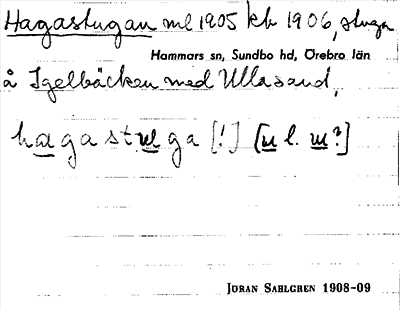 Hagastugan ml 1905 kb 1906, stuga
Hammars sn, Sundbo hd, Örebro län
å Igelbäcken med Ullasand,
hagastuga [!] [u l. u?]
JÖRAN SAHLGREN 1908-09